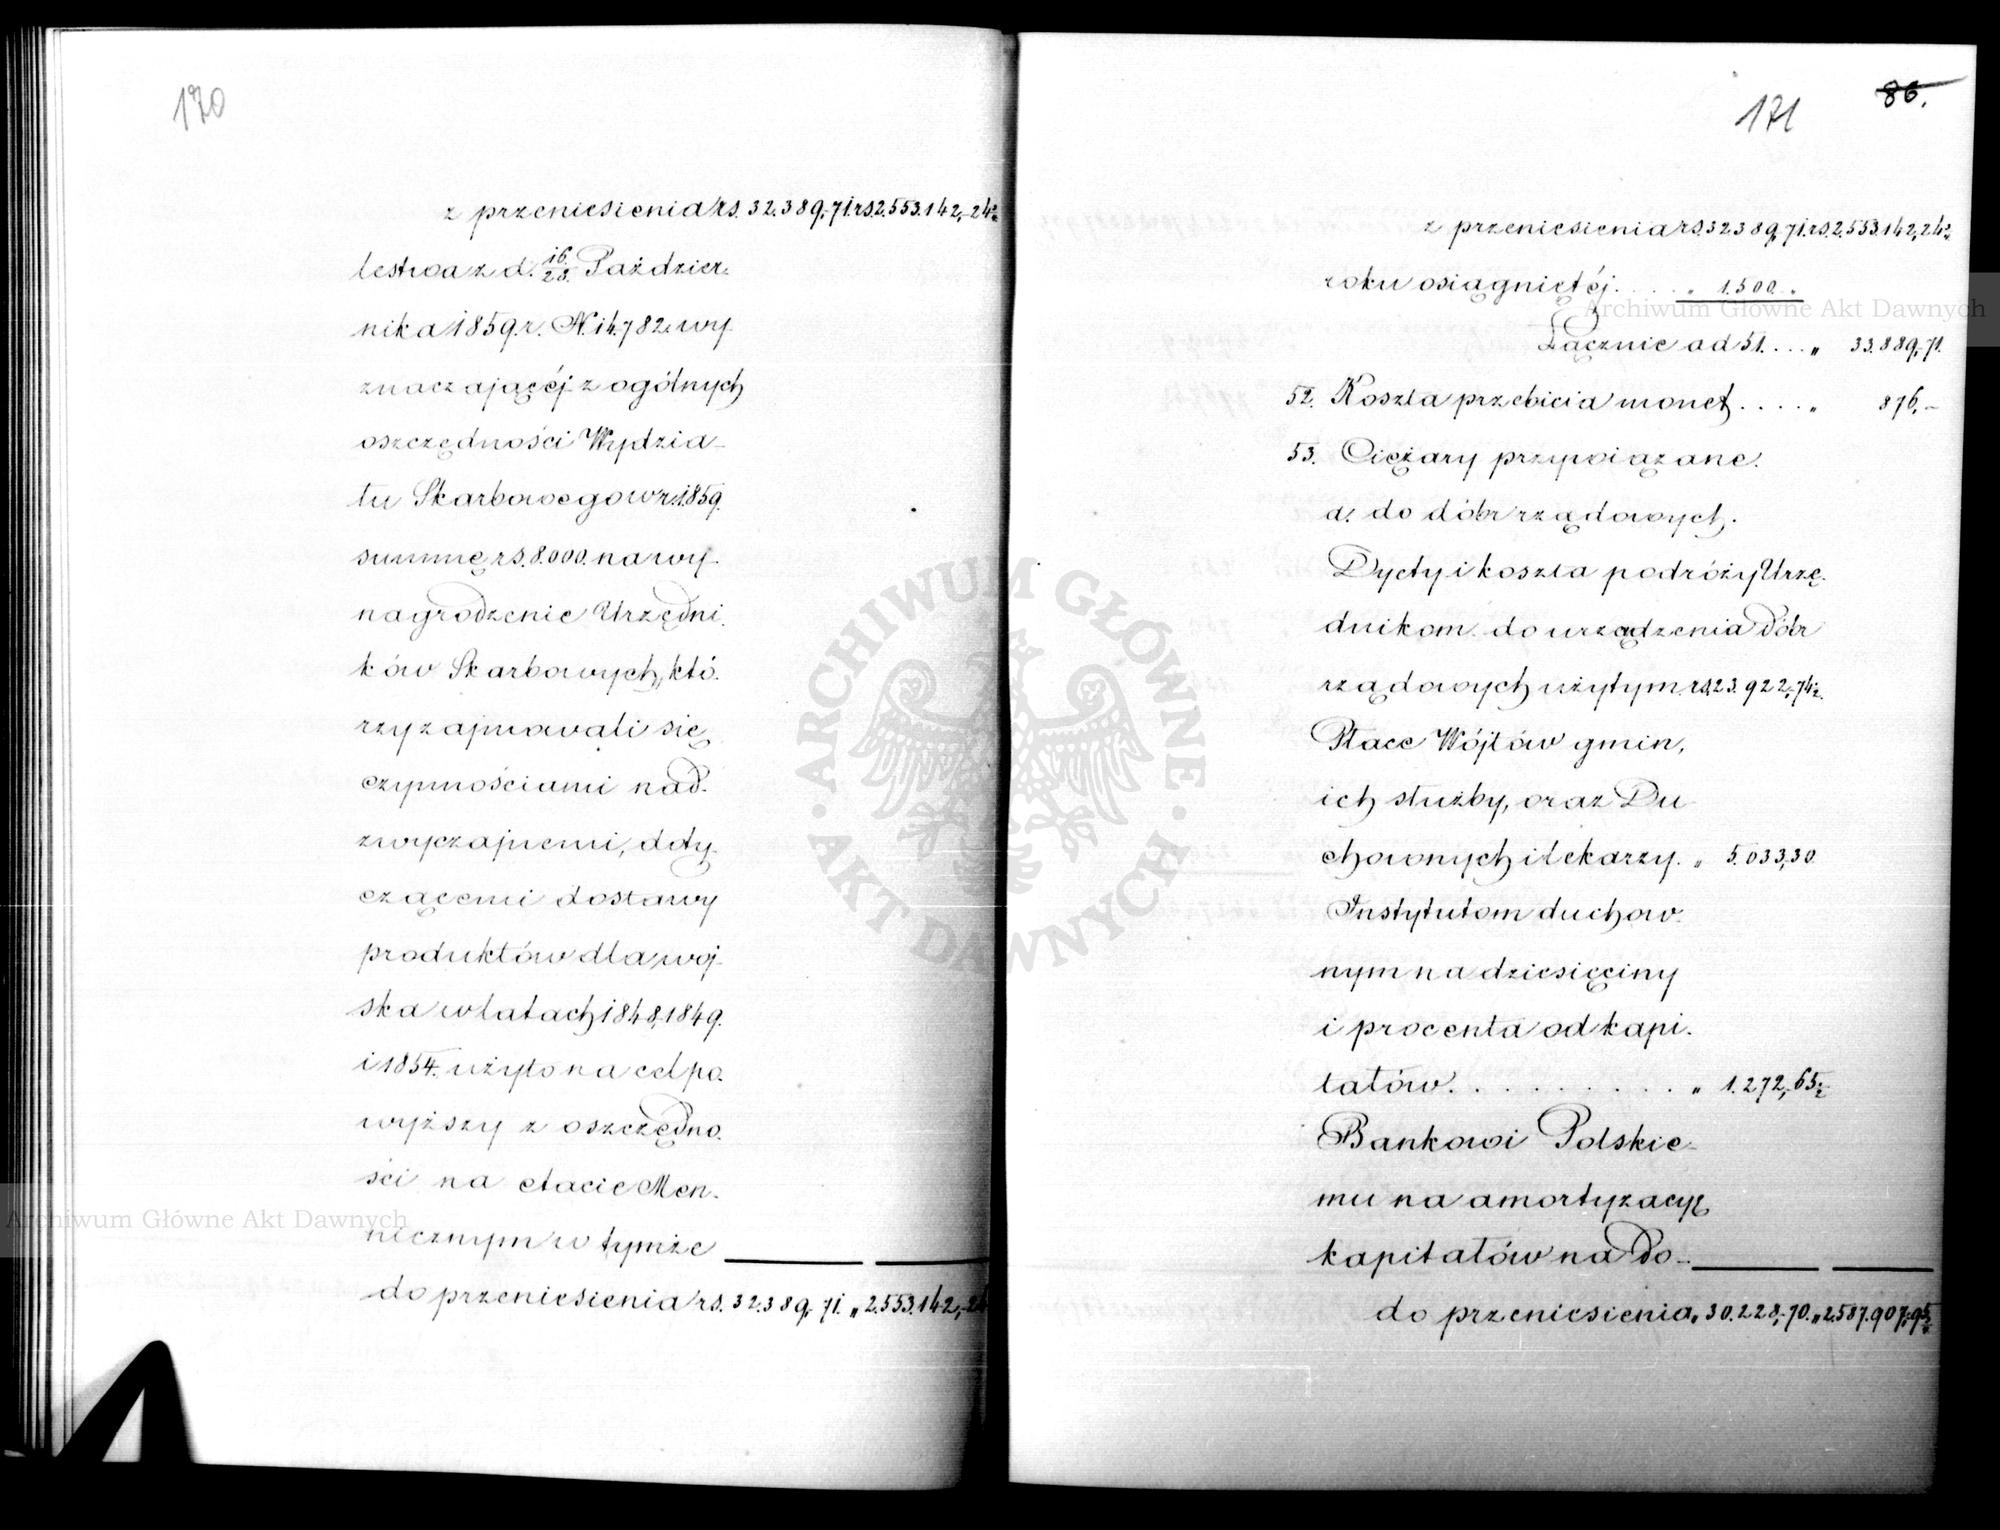 170
z przeniesienia rs. 32.389,71. rs. 2.553.142,24½
lestwa z d. 16/28. Paździer-
nika 1859 r. N. 14.782. wy-
znaczającéj z ogólnych
oszczędności Wydzia-
łu Skarbowego w r. 1859.
summę rs. 8.000. na wy-
nagrodzenie Urzędni-
ków Skarbowych, któ-
rzy zajmowali się
czynnościami nad-
zwyczajnemi, doty-
czącemi dostawy
produktów dla woj-
ska w latach 1848, 1849.
i 1854. użyto na cel po-
wyższy z oszczędno-
ści na etacie Men-
nicznym w tymże
do przeniesienia rs. 32.389,71. „ 2.553.142,24
171
86.
z przeniesienia rs. 32.389,71. rs. 2.553.142,24½
roku osiągniętéj. . . . „ 1.500. „
Łącznie ad 51. . . . „ 33.889,71.
52. Koszta przebicia monet. . . . „ 876,–
53. Ciężary przywiązane.
a. do dóbr rządowych.
Dyety i koszta podróży Urzę-
dnikom do urządzenia dóbr
rządowych użytym. rs. 23.922,74½
Płace Wójtów gmin,
ich służby, oraz Du-
chownych i lekarzy. „ 5.033,30
Instytutom duchow-
nym na dziesięciny
i procenta od kapi-
tałów. . . . . . . . . . „ 1.272,65½
Bankowi Polskie-
mu na amortyzacyę
kapitałów na do-
do przeniesienia „ 30.228,70. „ 2.587.907,95½
Archiwum Główne Akt Dawnych
Archiwum Główne Akt Dawnych
ARCHIWUM GŁÓWNE · AKT DAWNYCH ·